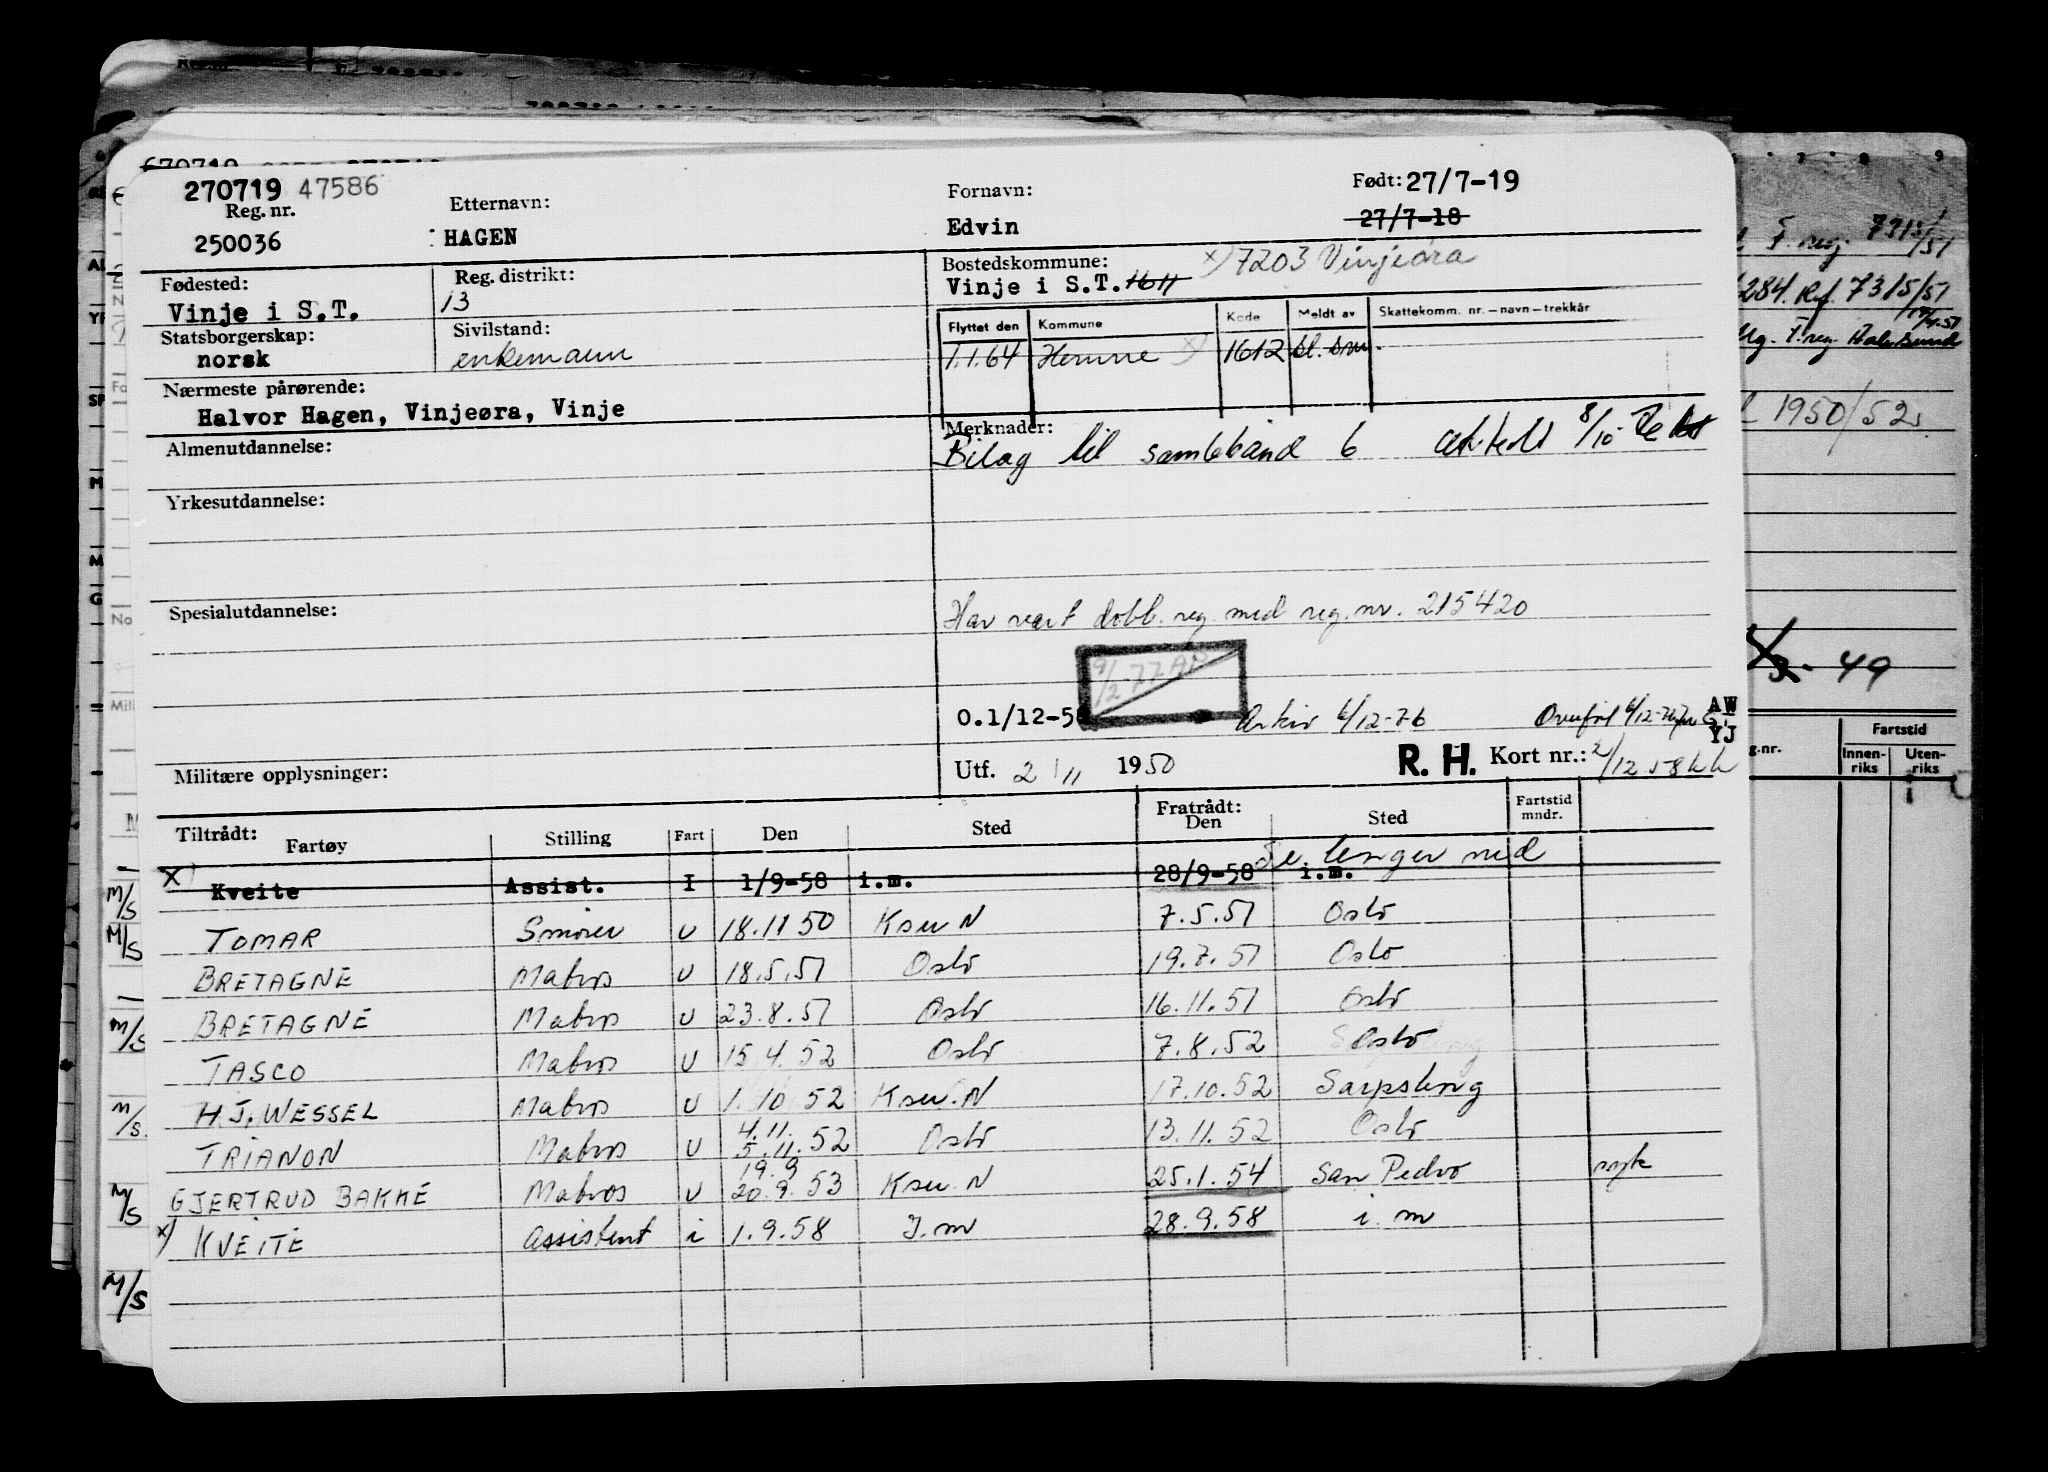 270719 47586
Reg. nr.
250036
Etternavn:
HAGEN
Fornavn:
Edvin
Født: 27/7-19
27/7-18
Fødested:
Vinje i S.T.
Reg. distrikt:
13
Bostedskommune: x) 7203 Vinjeøra
Vinje i S.T. 1611
Statsborgerskap:
norsk
Sivilstand:
enkemann
Flyttet den Kommune Kode Meldt av Skattekomm. nr. – navn – trekkår
1.1.64 Hemne x) 1612
Nærmeste pårørende:
Halvor Hagen, Vinjeøra, Vinje
Almenutdannelse:
Merknader:
Bilag til samlebånd 6
8/10
Yrkesutdannelse:
Spesialutdannelse:
Har vært dobb. reg. med reg. nr. 215420
9/2-77 AP
O.1/12-5
Arkiv 6/12-76
AW
YJ
Militære opplysninger:
Utf. 2/11 1950
R. H. Kort nr.: 2/12 58 kk
Tiltrådt: Fartøy Stilling Fart Den Sted Fratrådt: Den Sted Fartstid mndr.
Se lenger ned
x) Kveite Assist. I 1/9-58 i.m. 28/9-58 i.m.
TOMAR Smører U 18.11 50 Ksu N 7.5.51 Oslo
BRETAGNE Matros U 18.5.51 Oslo 19.7.51 Oslo
BRETAGNE Matros U 23.8.51 Oslo 16.11.51 Oslo
TASCO Matros U 15.4.52 Oslo 7.8.52 Oslo
H.J. WESSEL Matros U 1.10 52 Ksu. N 17.10.52 Sarpsborg
4.11.
TRIANON Matros U 5.11.52 Oslo 13.11.52 Oslo
19.9
GJERTRUD BAKKE Matros U 20.9.53 Ksu. N 25.1.54 San Pedro syk
x) KVEITE Assistent i 1.9.58 I.m 28.9.58 i.m
M/S
M/S
M/S
M/S
M/S
M/S
T. reg. 7315/51
284. Ref. 7315/51
1950/52
49
g.nr.
Fartstid
Innen-riks Uten-riks